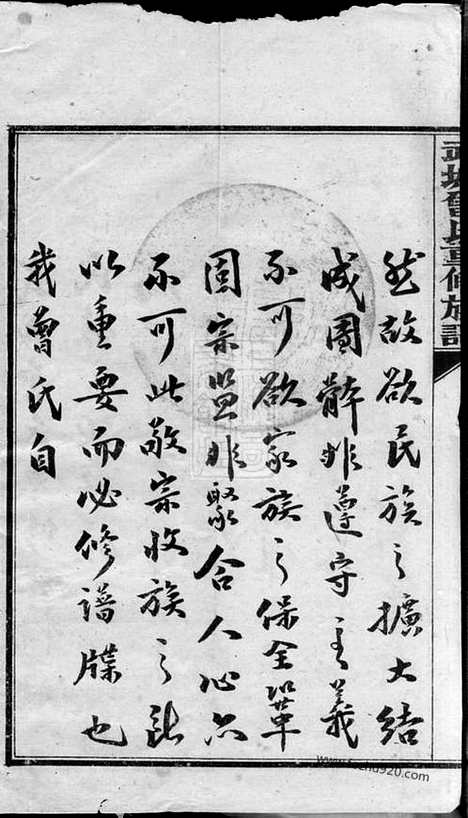 武城曾氏重修族譜
然故欲民族之擴大結
成團體非遵守主義
不可欲家族之保全鞏
固宗盟非聚合人心亦
不可此敬宗收族之所
以重要而必修譜牒也
我曾氏自
www.fozhu920.com